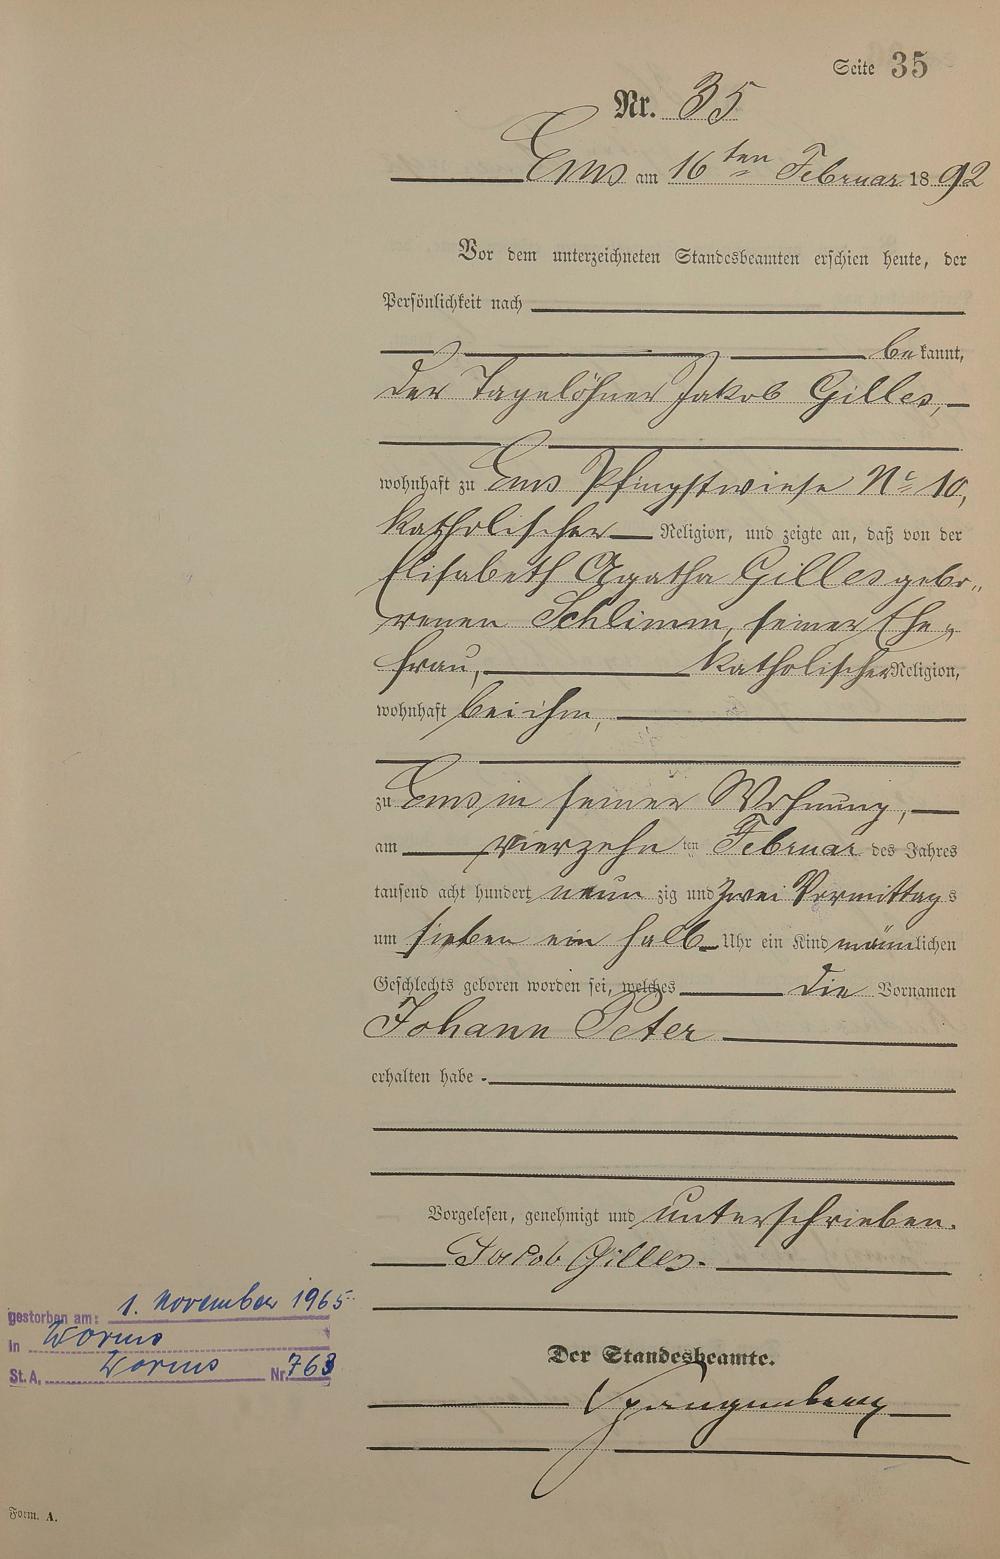 Seite 35
Nr. 35
Ems am 16ten Februar 1892
Vor dem unterzeichneten Standesbeamten erschien heute, der
Persönlichkeit nach
bekannt,
der Tagelöhner Jakob Gilles,
wohnhaft zu Ems Pfingstwiese No 10,
katholischer Religion, und zeigte an, daß von der
Elisabeth Agatha Gilles gebo„
renen Schlimm, seiner Ehe„
frau, katholischer Religion,
wohnhaft bei ihm,
zu Ems in seiner Wohnung,
am vierzehnten Februar des Jahres
tausend acht hundert neunzig und zwei Vormittags
um sieben ein halb Uhr ein Kind männlichen
Geschlechts geboren worden sei, welches die Vornamen
Johann Peter
erhalten habe.
Vorgelesen, genehmigt und unterschrieben.
Jacob Gilles.
gestorben am: 1. November 1965
In Worms
St. A. Worms Nr. 763
Der Standesbeamte.
Spangenberg
Form. A.